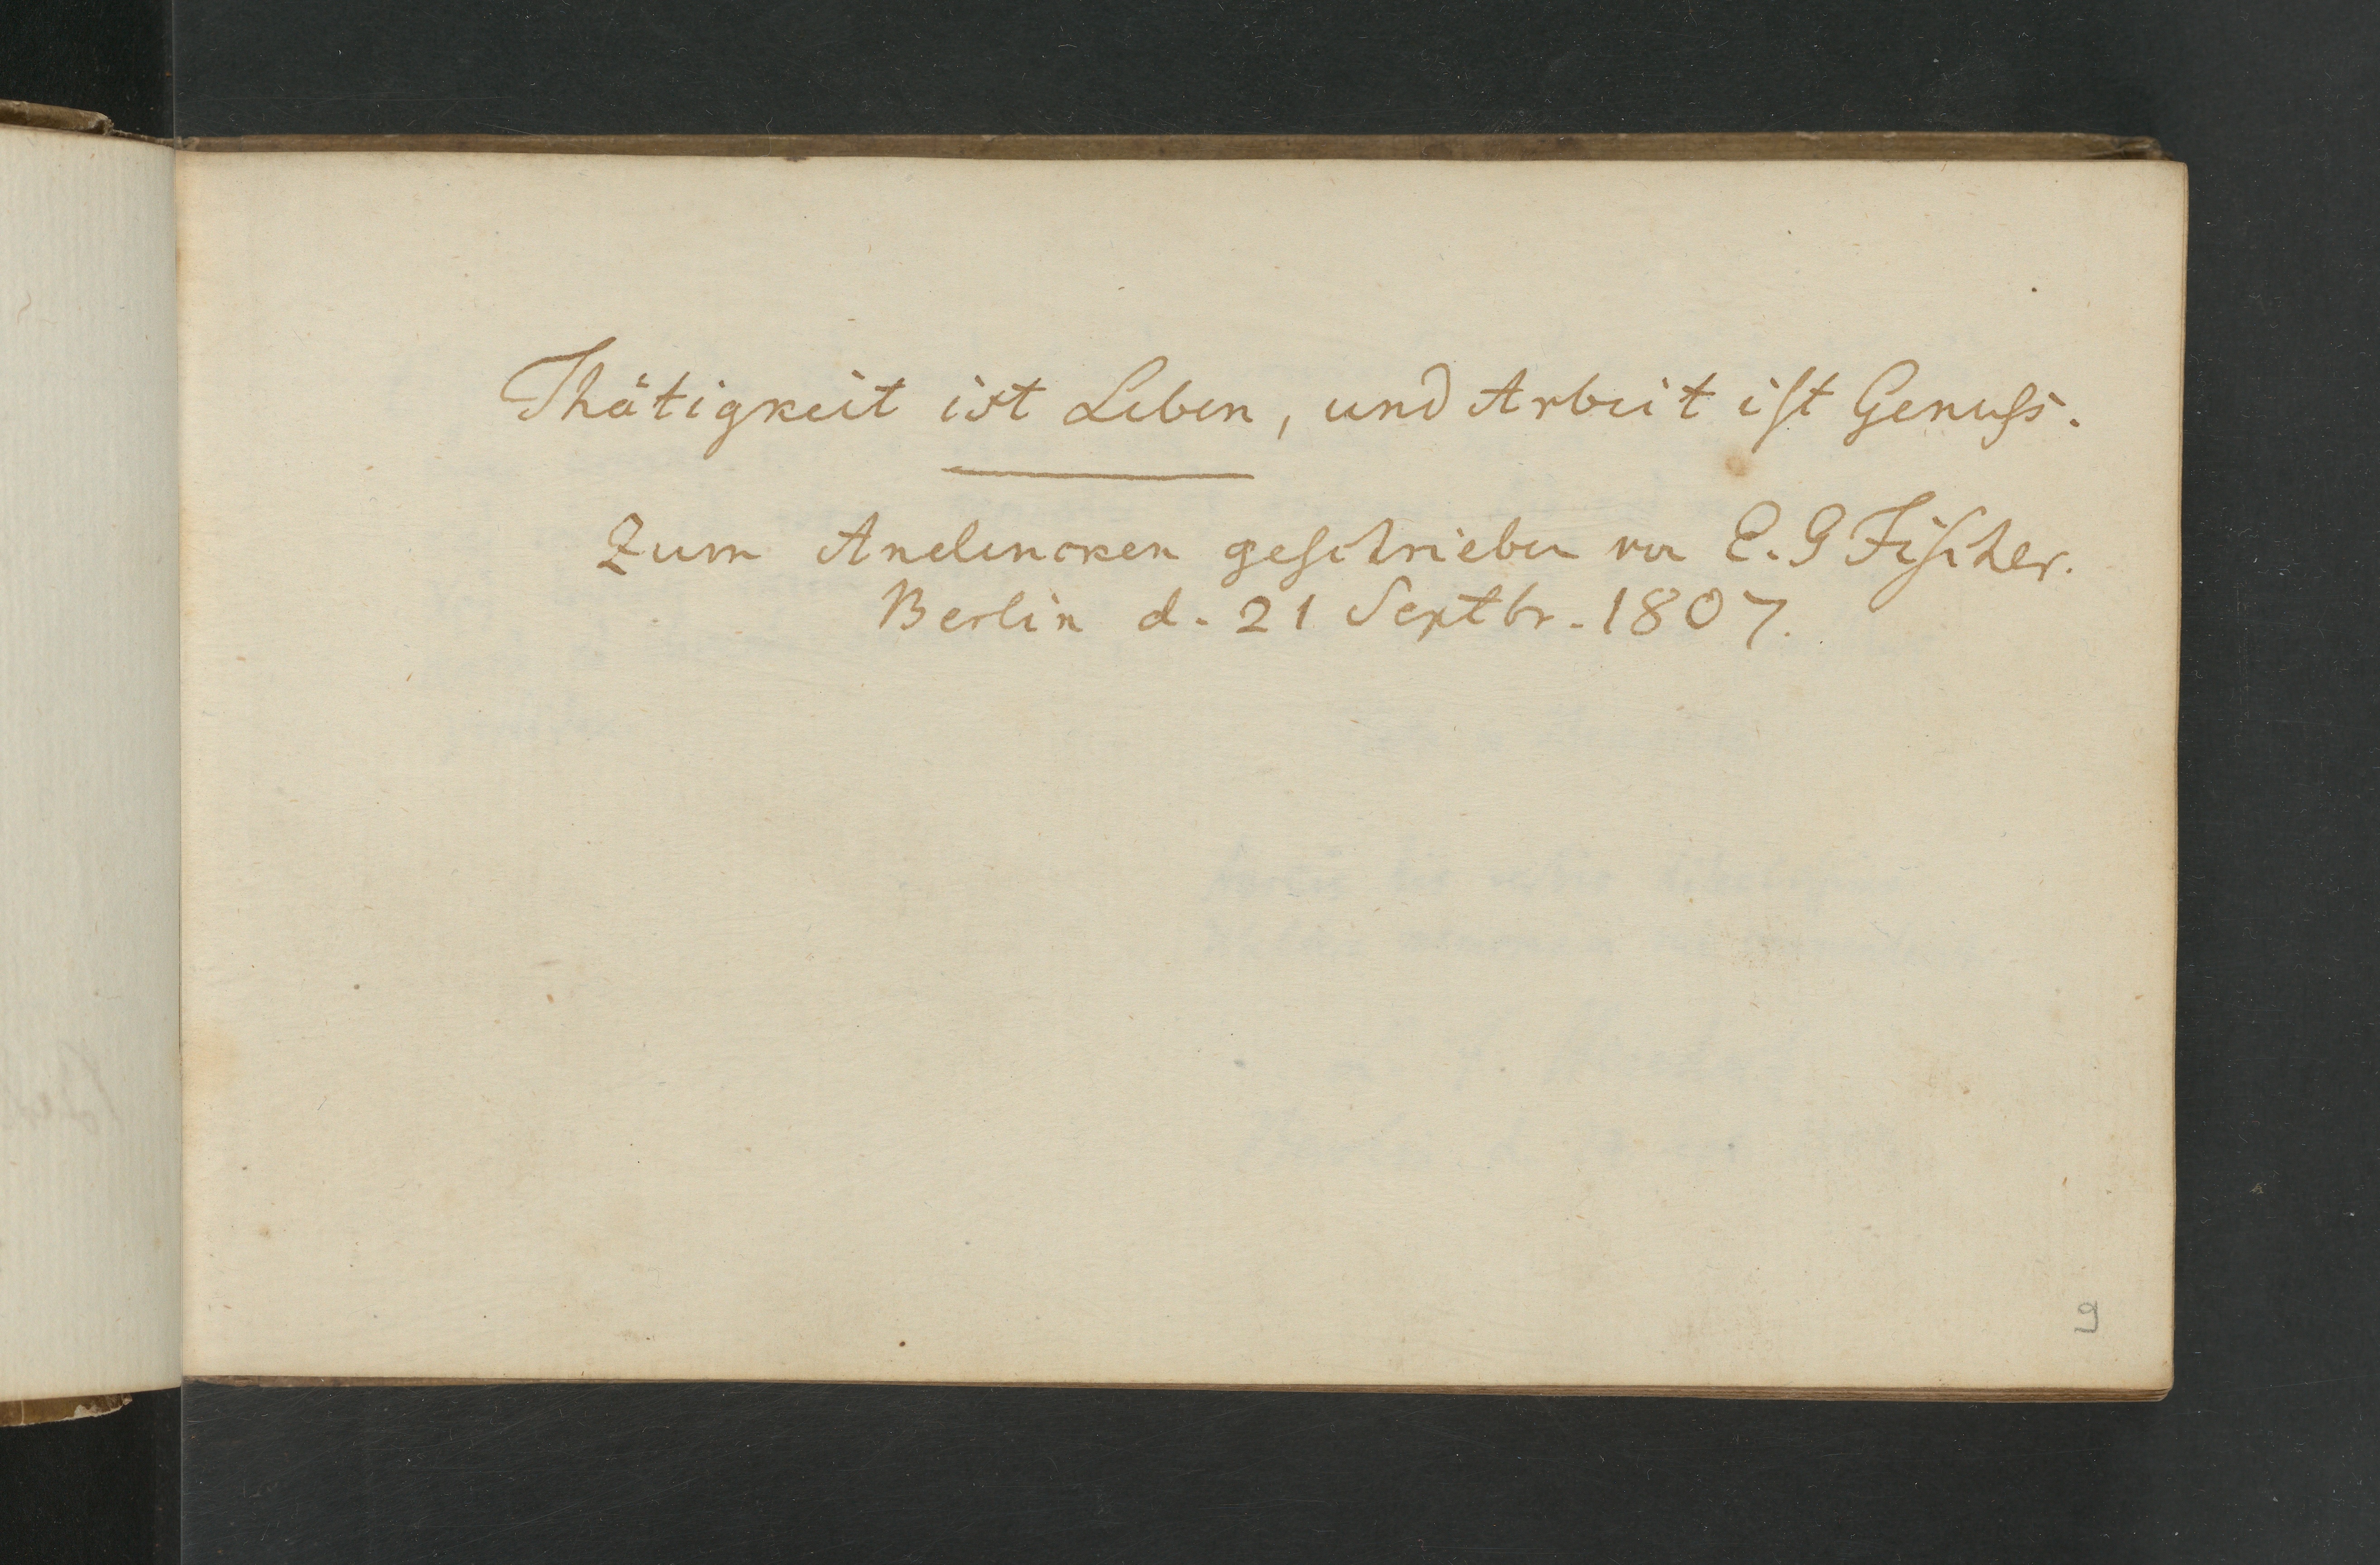 Thätigkeit ist Leben, und Arbeit iſt Genuſs.
Zum Andencken geſchrieben von E. G Fiſcher.
Berlin d. 21 Septbr. 1807.
9